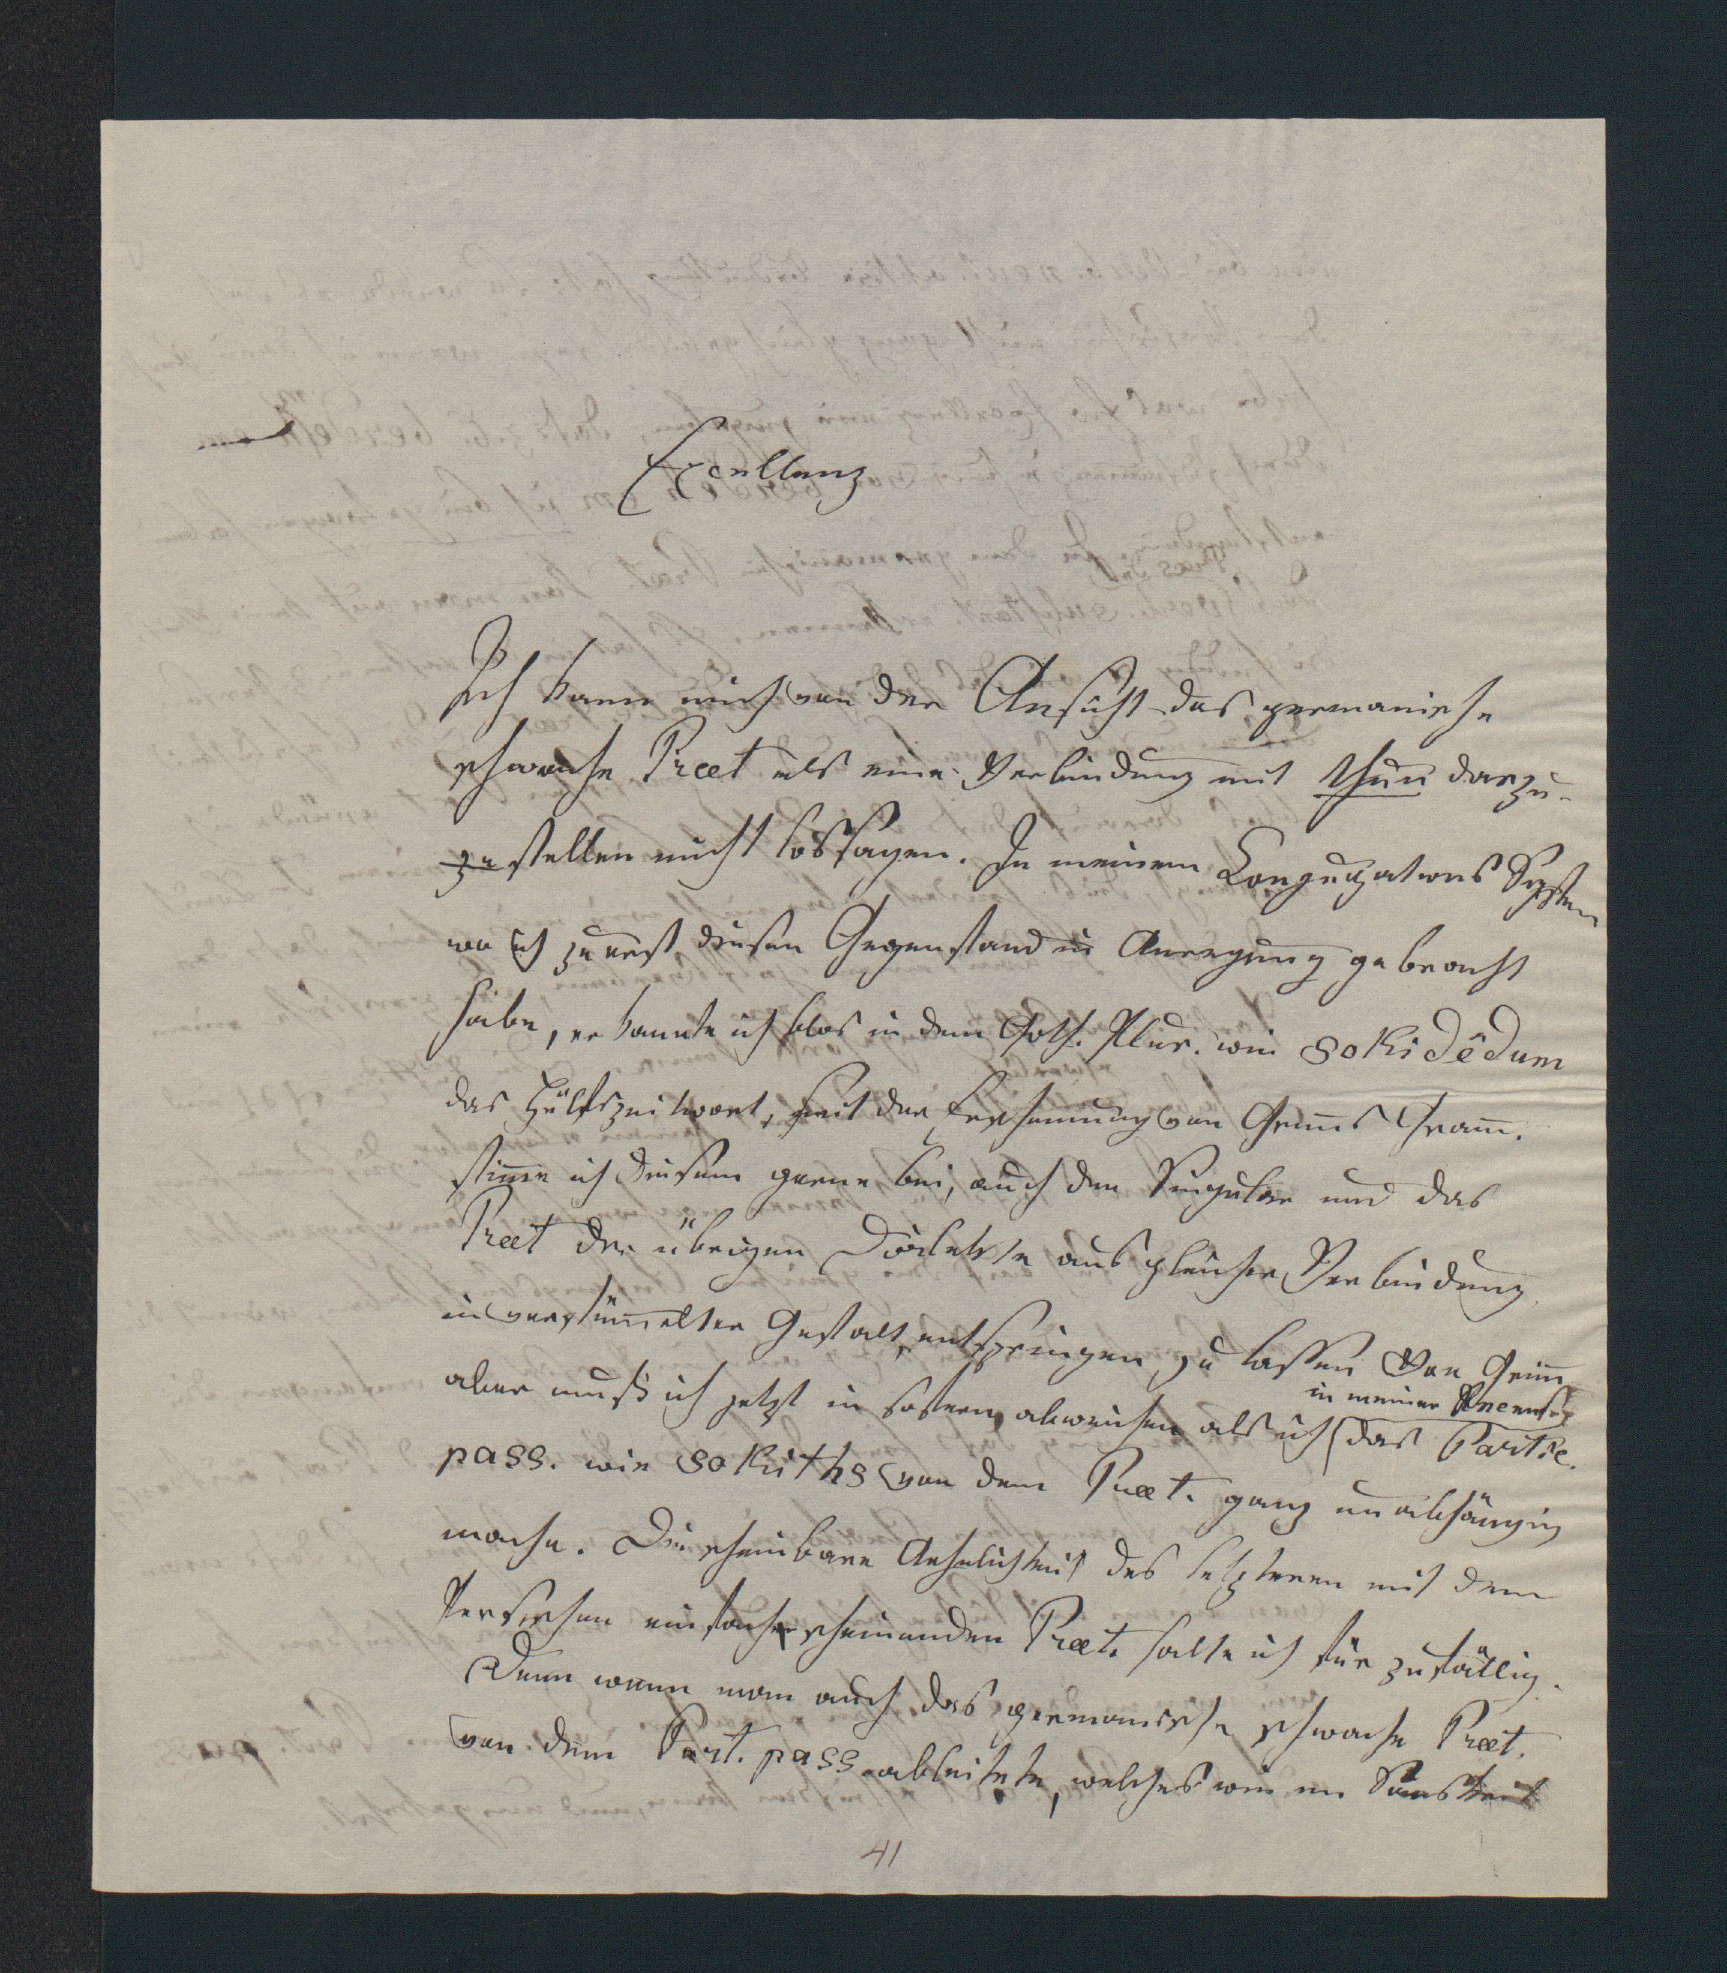 Excellenz
Ich kann mich von der Ansicht das germanische
schwache Praet als eine Verbindung mit thun darzu-
zu stellen nicht lossagen. In meinem Conjugations System
wo ich zuerst diesen Gegenstand in Anregung gebracht
habe, erkannte ich blos in dem Goth. Plur. wie sokidêdum
das Hülfszeitwort, seit der Erscheinung von Grim̅s Gram̅.
stim̅e ich diesem gerne bei, auch den Singular und das
Praet der übrigen Dialekte aus gleicher Verbindung
in verstüm̅elter Gestalt entspringen zu lassen Von Grim̅
aber muß ich jetzt in sofern abweichen als ich das Partic.
in meiner Recens.
pass. wie sokiths von dem Praet. ganz unabhängig
mache. Die scheinbare Aehnlichkeit des letzteren mit dem
Persischen einfach scheinenden Praet. halte ich für zufällig.
Denn wenn man auch das germanische schwache Praet.
von dem Part. pass ableitete, welches wie im Sanskrit
41